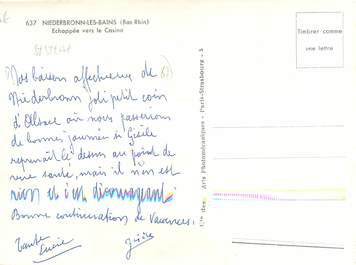 637 NIEDERBRONN-LES-BAINS (Bas Rhin)
Echappée vers le Casino
Timbrer comme
une lettre
Nos baisers affectueux de
Niederbronn joli petit coin
d'Alsace où nous passerions
de bonnes journées si Gisèle
reprenait le dessus au point de
vue santé, mais il n'en est
rien et c'est décourageant.
Bonne continuation de Vacances.
Tante
Lucie
Gisèle
Cie des Arts Photomécaniques - Paris-Strasbourg - 3